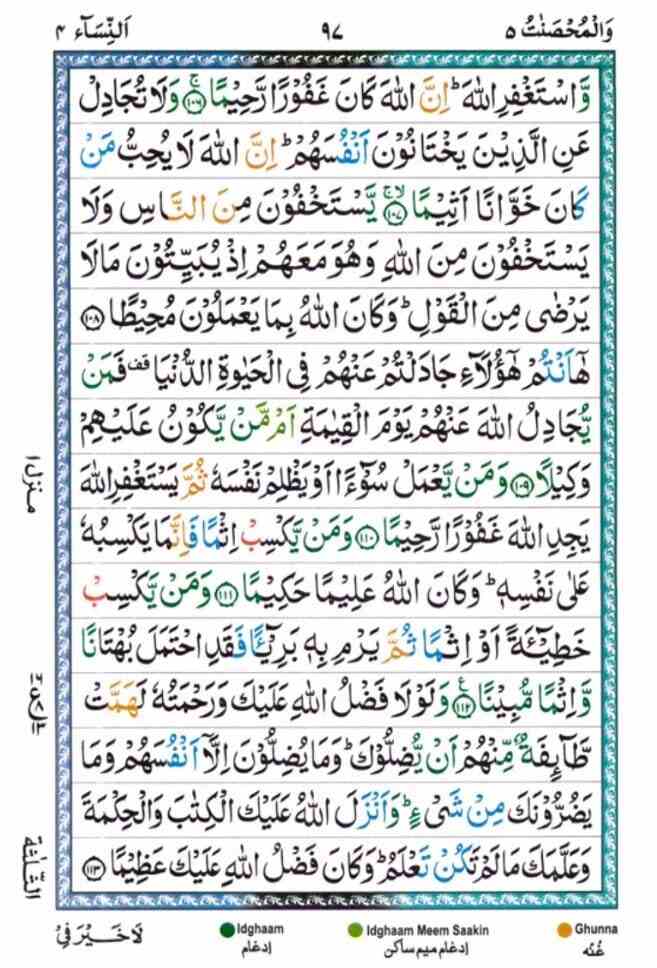 وَالْمُحْصَنٰتُ ٥
٩٧
اَلنِّسَآء ٤
وَّاسْتَغْفِرِ اللّٰهَ ؕ اِنَّ اللّٰهَ كَانَ غَفُوْرًا رَّحِيْمًا ۚ‏﴿۱۰۶﴾ وَلَا تُجَادِلْ
عَنِ الَّذِيْنَ يَخْتَانُوْنَ اَنْفُسَهُمْ ؕ اِنَّ اللّٰهَ لَا يُحِبُّ مَنْ
كَانَ خَوَّانًا اَثِيْمًا ۚۙ‏﴿۱۰۷﴾ يَّسْتَخْفُوْنَ مِنَ النَّاسِ وَلَا
يَسْتَخْفُوْنَ مِنَ اللّٰهِ وَهُوَ مَعَهُمْ اِذْ يُبَيِّتُوْنَ مَا لَا
يَرْضٰى مِنَ الْقَوْلِ ؕ وَكَانَ اللّٰهُ بِمَا يَعْمَلُوْنَ مُحِيْطًا ‏﴿۱۰۸﴾
هٰۤاَنْتُمْ هٰٓؤُلَآءِ جَادَلْتُمْ عَنْهُمْ فِى الْحَيٰوةِ الدُّنْيَا قف فَمَنْ
يُّجَادِلُ اللّٰهَ عَنْهُمْ يَوْمَ الْقِيٰمَةِ اَمْ مَّنْ يَّكُوْنُ عَلَيْهِمْ
وَكِيْلًا ‏﴿۱۰۹﴾ وَمَنْ يَّعْمَلْ سُوْٓءًا اَوْ يَظْلِمْ نَفْسَهٗ ثُمَّ يَسْتَغْفِرِ اللّٰهَ
يَجِدِ اللّٰهَ غَفُوْرًا رَّحِيْمًا ‏﴿۱۱۰﴾ وَمَنْ يَّكْسِبْ اِثْمًا فَاِنَّمَا يَكْسِبُهٗ
عَلٰى نَفْسِهٖ ؕ وَكَانَ اللّٰهُ عَلِيْمًا حَكِيْمًا ‏﴿۱۱۱﴾ وَمَنْ يَّكْسِبْ
خَطِيْٓئَةً اَوْ اِثْمًا ثُمَّ يَرْمِ بِهٖ بَرِيْٓئًا فَقَدِ احْتَمَلَ بُهْتَانًا
وَّاِثْمًا مُّبِيْنًا ۧ‏﴿۱۱۲﴾ وَلَوْلَا فَضْلُ اللّٰهِ عَلَيْكَ وَرَحْمَتُهٗ لَهَمَّتْ
طَّآئِفَةٌ مِّنْهُمْ اَنْ يُّضِلُّوْكَ ؕ وَمَا يُضِلُّوْنَ اِلَّاۤ اَنْفُسَهُمْ وَمَا
يَضُرُّوْنَكَ مِنْ شَىْءٍ ؕ وَاَنْزَلَ اللّٰهُ عَلَيْكَ الْكِتٰبَ وَالْحِكْمَةَ
وَعَلَّمَكَ مَا لَمْ تَكُنْ تَعْلَمُ ؕ وَكَانَ فَضْلُ اللّٰهِ عَلَيْكَ عَظِيْمًا ‏﴿۱۱۳﴾
منزل ١
الثلثة
لَا خَيْرَ فِىْ
Idghaam
إدغام
Idghaam Meem Saakin
إدغام ميم ساكن
Ghunna
غُنّه